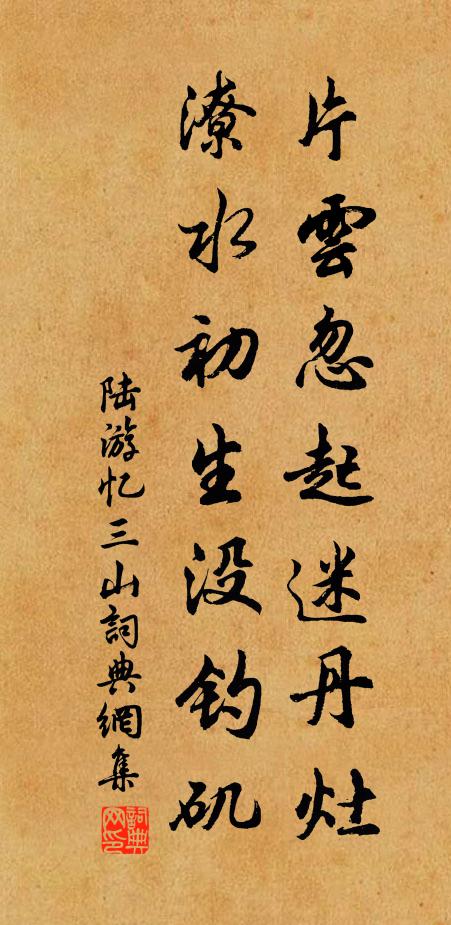 片雲忽起迷丹灶
潦水初生没钓矶
陆游忆三山詞典網集
詞典
网印